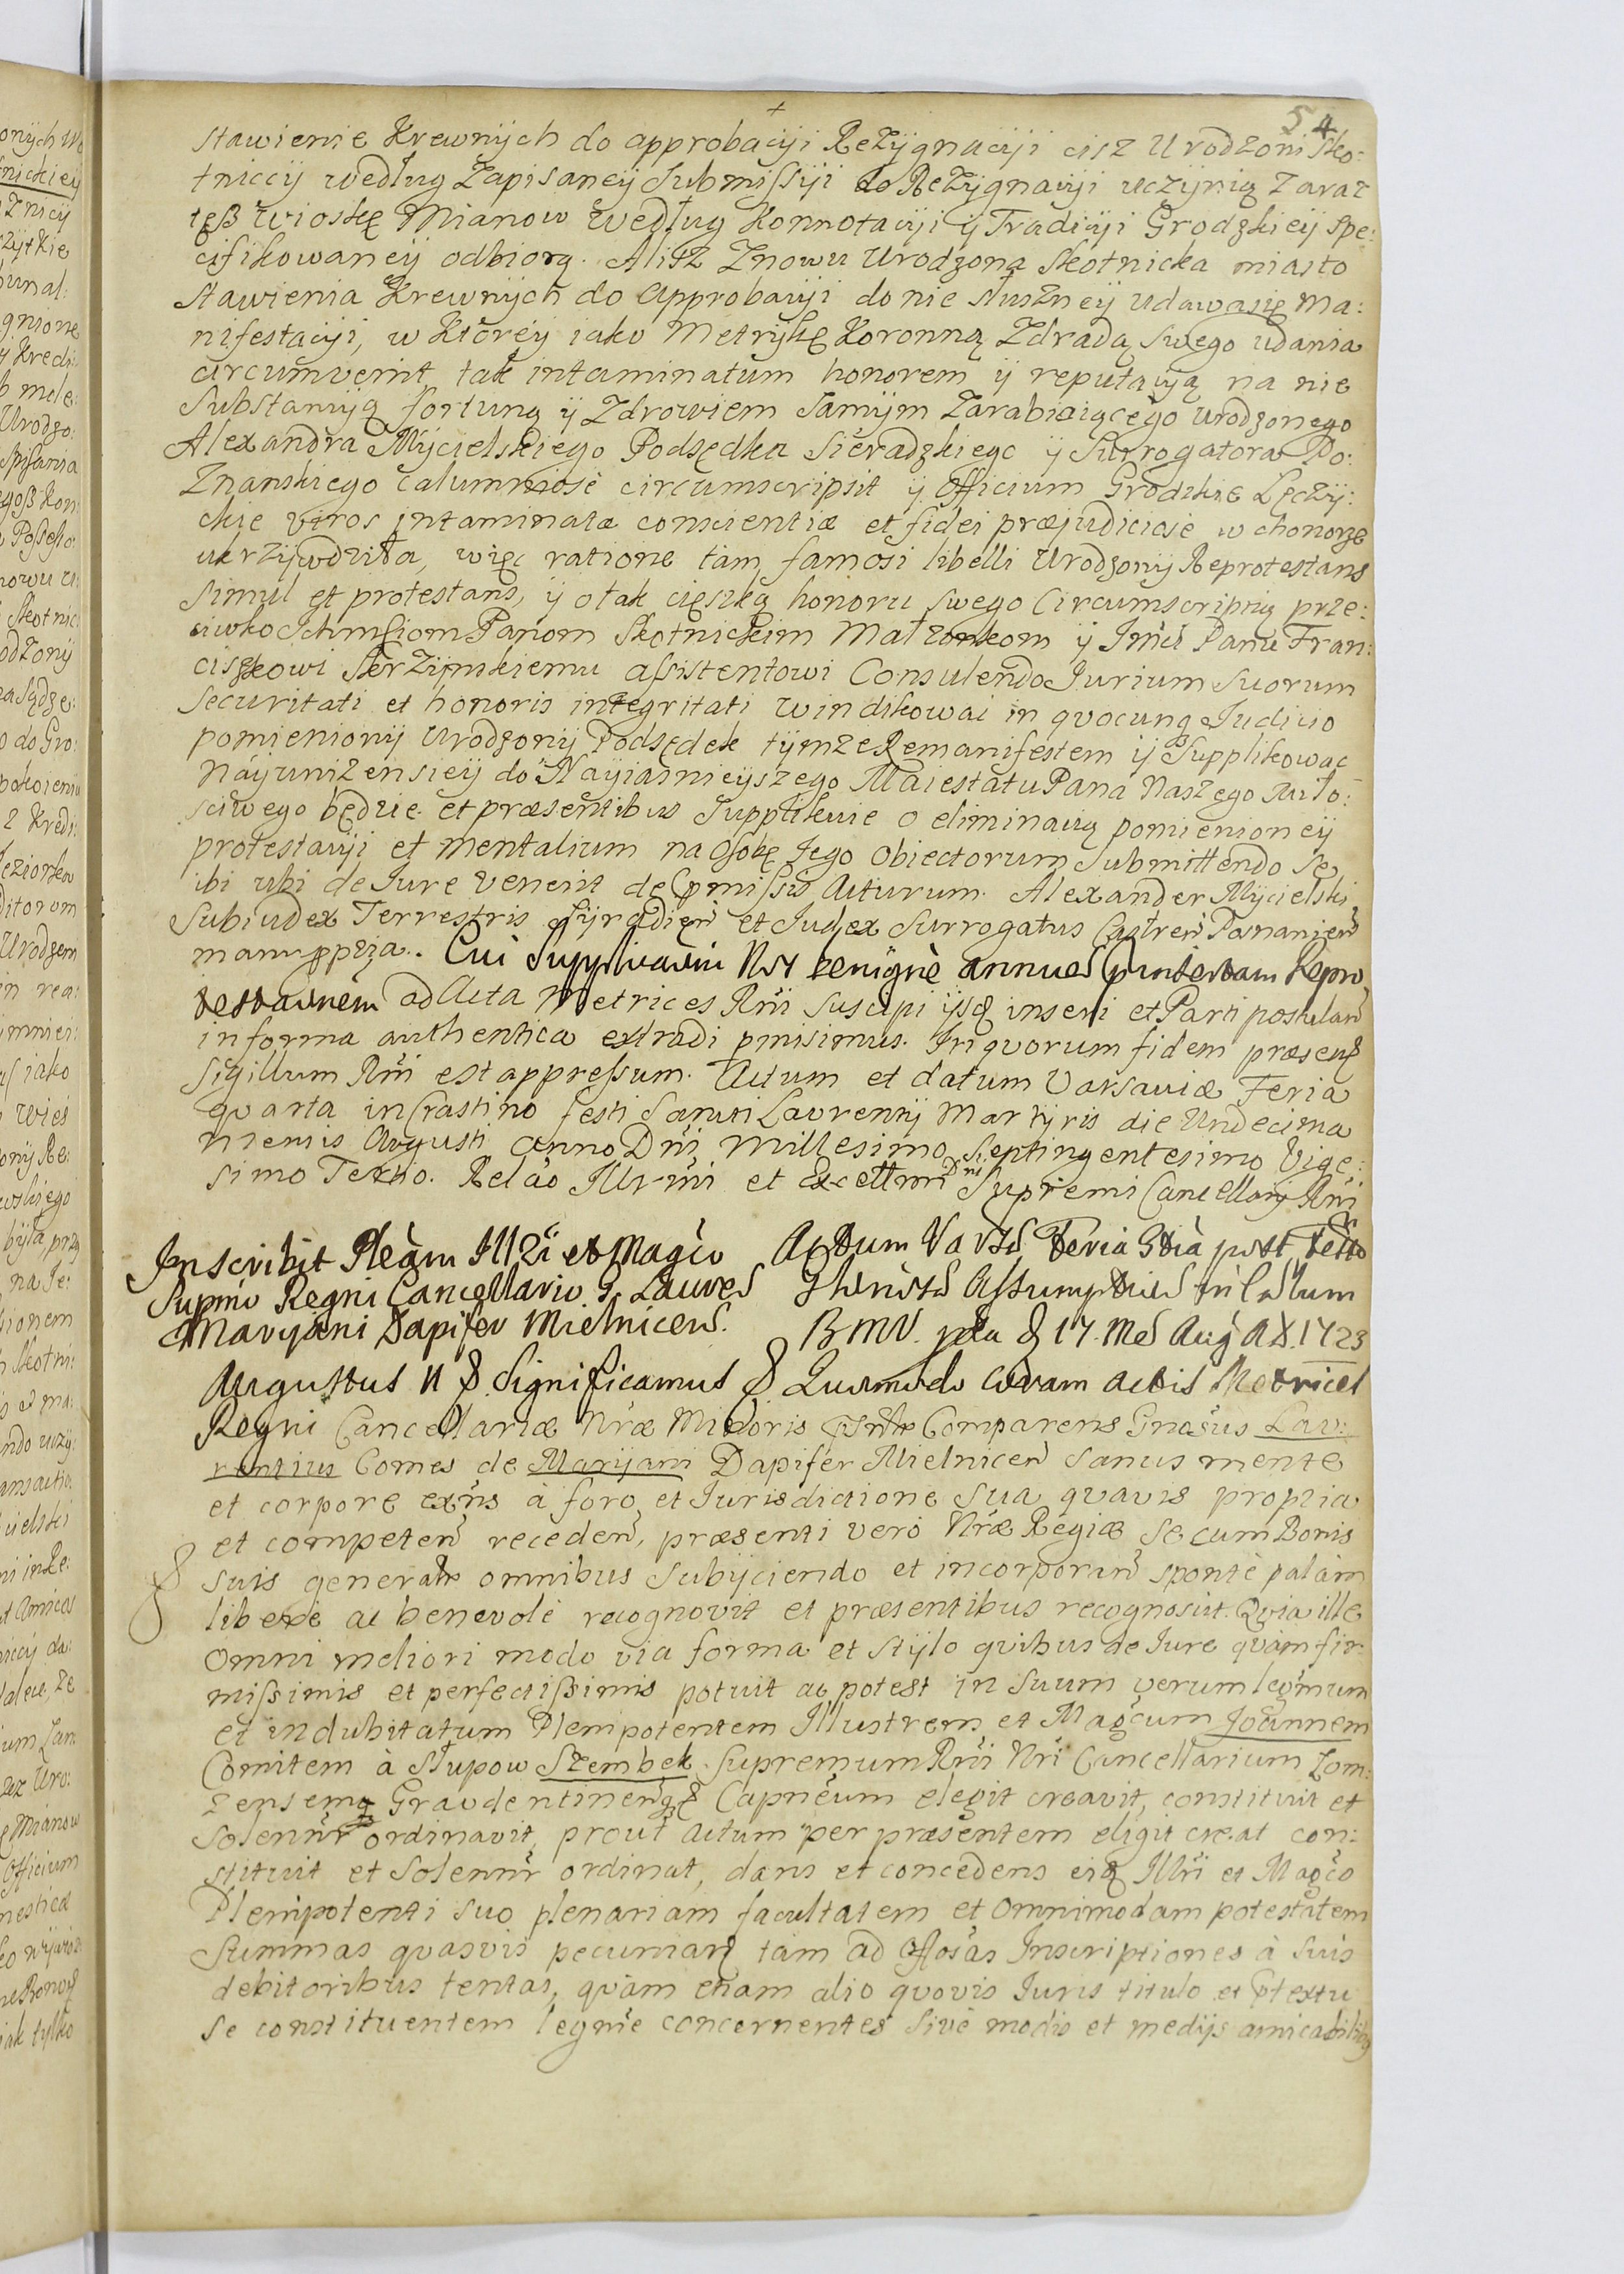 54
stawienie Krewnÿch do approbacÿi Rezÿgnacÿi cisz Urodzoni Sko:
tniccÿ według Zapisaneÿ Submissÿi do Rezÿgnacÿi uczÿnią zaraz
tęß wioskę Mianow według Konnotacÿi ÿ Tradicÿi Grodzkieÿ spe:
cifikowaneÿ odbiorą. Alisz Znowu Urodzona Skotnicka miasto
stawienia Krewnÿch do approbacÿi do nie słuszneÿ udawasię ma:
nifestacÿi, w Ktoreÿ iako Metrÿkę Koronną Zdradą swego udania
circumvenit, tak intaminatum honorem ÿ reputacÿą na nie
Substancÿą fortuną ÿ Zdrowiem samÿm Zarabiaiącego urodzonego
Alexandra Mÿcielskiego Podsędka Sieradzkiego ÿ Surrogatora Po:
Znanskiego calumniosè circumscripsit ÿ Officium Grodzkie Łęczÿ:
ckie viros intaminatæ conscientiæ et fidei præjudiciosè w chonorze
ukrzÿwdziła, więc ratione tam famosi libelli Urodzonÿ Reprotestans
simul et protestans, ÿ o tak cięszką honoru swego Circumscriptią prze:
ciwko Ichmściom Panom Skotnickim Małzonkom ÿ Imći Panu Fran:
ciszkowi Skrzÿnskiemu assistentowi Consulendo Iurium Suorum
Securitati et honoris integritati windikowac in qvocunq Iudicio
pomienionÿ Urodzonÿ Podsędek tÿmze Remanifestem ÿ Supplikowac
Náyunizensieÿ do Nayiasnieÿszego Maiestatu Pana Naszego Miło:
sciwego będzie et præsentibus Supplikuie o eliminacią pomienioneÿ
protestacÿi et mentalium na Osobę Jego Obiectorum Submittendo se
ibi ubi de Iure venerit de præmissis Acturum. Alexander Mÿcielski
Subiudex Terrestris Sÿradien et Iudex Surrogatus Castren Posnanien
manu ppria. Cui Supplicaõni Nos benignè annuen præinsertam Repro
testaõnem ad Acta Metrices Rñi suscipi ÿsq inseri et Parti postulan
in forma authentica extradi pmisimus. In qvorum fidem præsen
Sigillum Rñi est appressum. Actum et datum Varsaviæ Feria
qvarta in Crastino festi Sancti Lavrentÿ Martÿris die Undecima
mensis Avgusti Anno Dñi Millesimo Septingentesimo Vige:
simo Tertio. Relão Illrmi et Excellmi Dñi Supremi Cancellarÿ Rñi
Inscribit Plenam Illri et Magco
Supmo Regni Cancellario G. Lauren
Maryani Dapifer Mielnicen.
Actum Vars Feria 3tia post Festo
Assumptionis in Cœlum
BMV. 17. Mes Aug AD. 1723
Augustus II & Significamus & Quomodo coram Actis Metrices
Regni Cancellariæ Nræ Minoris Comparens Gnosus Lav:
rentius Comes de Marijani Dapifer Mielnicen sanus mente
et corpore exñs à foro et Iurisdictione sua qvavis propria
et competen receden, præsenti verò Nræ Regiæ se cum Bonis
suis generaliter omnibus Subÿciendo et incorporan spontè palàm
liberè ac benevolè recognovit et præsentibus recognoscit. Qvia ille
Omni meliori modo via forma et stÿlo qvibus de Iure qvàm fir:
missimis et perfectissimis potuit ac potest in Suum verum legmum
et indubitatum Plenipotentem Illustrem et Magcum Joannem
Comitem à Słupow Szembek Supremum Rñi Nri Cancellarium Łom:
zensemq Gravdentinenq Capneum elegit creavit, constituit et
Solenñr ordinavit, prout Actum per præsentem eligit creat con:
stituit et Solennr ordinat, dans et concedens eiq Illri et Magco
Plenipotenti suo plenariam facultatem et Omnimodam potestatem
Summas qvasvis pecuniar tàm ad Inscriptiones à suis
debitoribus tentas, qvàm etiam alio qvovis Iuris titulo et Ptextu
se constituentem legme concernentes sivè modis et medÿs amicabilibq